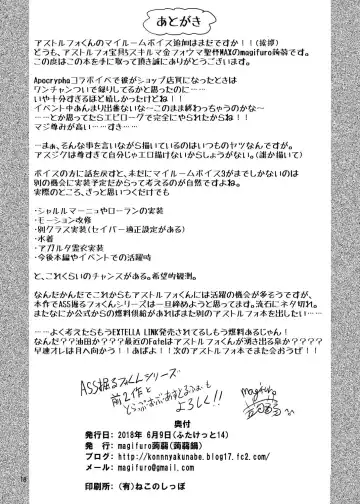 あとがき
アストルフォくんのマイルームボイス追加はまだですか！！(挨拶)
どうも、アストルフォ宝具5スキルマ金フォウマ聖杯MAXのmagifuro蒟蒻です。
この度はこの本を手に取って頂き誠にありがとうございます。
Apocryphaコラボイベで彼がショップ店員になったときは
ワンチャンついで帰りしてるかと思ったのに……
いや十分すぎるほど嬉しかったけどね！！
イベント中あんまり出番ないな～このまま終わっちゃうのかな～
……とか思ってたらエピローグで完全にやられたからね！！
マジ尊みが高い……すき……
…まぁ、そんな事を言いながら描いているのはいつものヤツなんですが。
アスジクは尊すぎて自分じゃエロ描けないからしょうがない。(誰か描いて)
ボイスの方に話を戻すと、未だにマイルームボイス3がまでしかないのは
別の機会に実装予定だからって考えるのが自然ですよね。
実際のところ、さっと思いつくだけでも
・シャルルマーニュやローランの実装
・モーション改修
・別クラス実装(セイバー適正設定がある)
・水着
・アガルタ霊衣実装
・今後本編やイベントでの活躍時
と、これくらいのチャンスがある。希望的観測。
なんだかんだでこれからもアストルフォくんには活躍の機会が多そうですが、
本作でASS掘るフォくんシリーズは一旦締めようと思ってます。流石にネタ切れ。
またなにか公式からの燃料供給があればまた別のアストルフォ本を出したい…
……よく考えたらもうEXTELLA LINK発売されてるしもう燃料あるじゃん！
なんだ？？油田か？？？最近のFateはアストルフォくんが湧き出る泉か？？？？
早速オレは月へ向かう！！あばよ！！次のアストルフォ本でまた会おうぜ！！
ASS掘るフォくんシリーズ
前2作と
とらぶるまぶあすとるふぉも
よろしく!!
magifuro
奥付
発行日：2018年 6月9日(ふたけっと14)
発行：magifuro蒟蒻(蒟蒻鍋)
ブログ：http://konnnyakunabe.blog17.fc2.com/
メール：magifuro@gmail.com
印刷所：(有)ねこのしっぽ
18